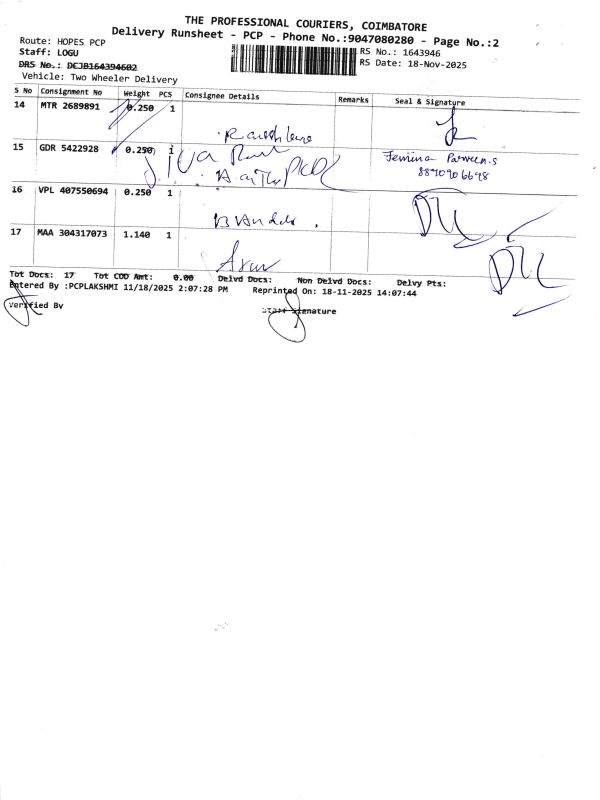 THE PROFESSIONAL COURIERS, COIMBATORE
Delivery Runsheet - PCP - Phone No.:9047080280 - Page No.:2
Route: HOPES PCP
RS No.: 1643946
Staff: LOGU
RS Date: 18-Nov-2025
DRS No.: DCJB164394602
Vehicle: Two Wheeler Delivery
S No Consignment No Weight PCS Consignee Details Remarks Seal & Signature
14 MTR 2689891 0.250 1
15 GDR 5422928 0.250 1 Jemima Parveen.S
8870906698
16 VPL 407550694 0.250 1
17 MAA 304317073 1.140 1
Arun
Tot Docs: 17 Tot COD Amt: 0.00 Delvd Docs: Non Delvd Docs: Delvy Pts:
Entered By :PCPLAKSHMI 11/18/2025 2:07:28 PM Reprinted On: 18-11-2025 14:07:44
Verified By
Staff Signature